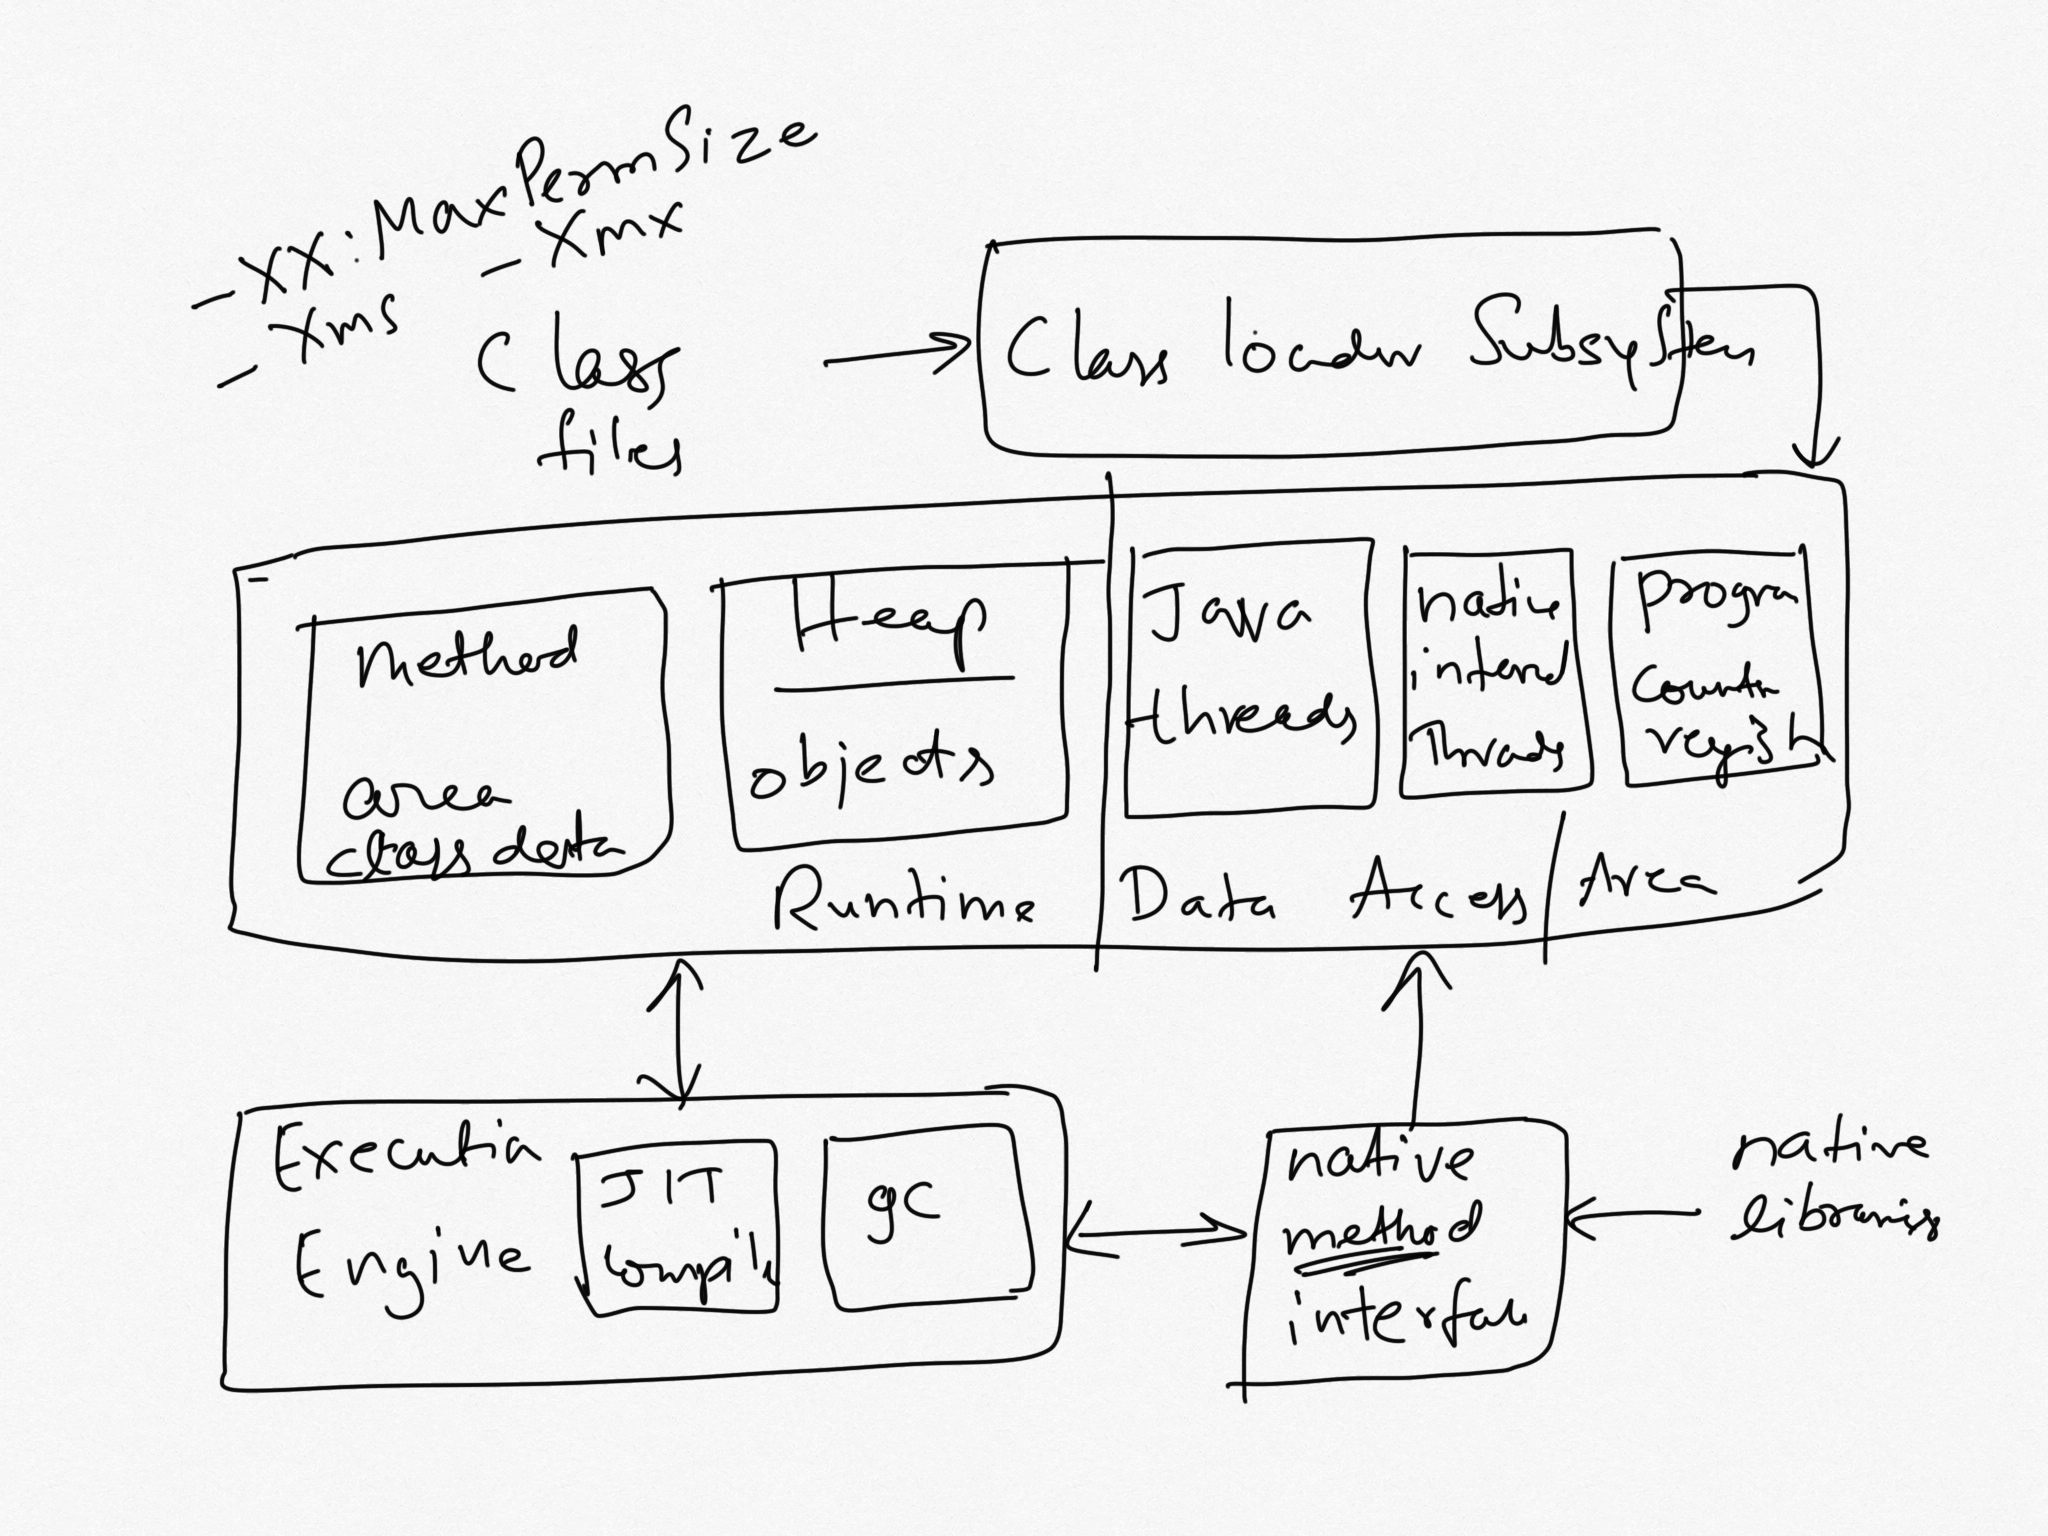 -XX:MaxPermSize
-Xms
-Xmx
Class
files
Class loader Subsystem
method
area
class data
Heap
objects
Java
threads
native
internal
Threads
progra
counter
regist
Runtime Data Access Area
Execution
Engine
JIT
compile
gc
native
method
interface
native
libraries